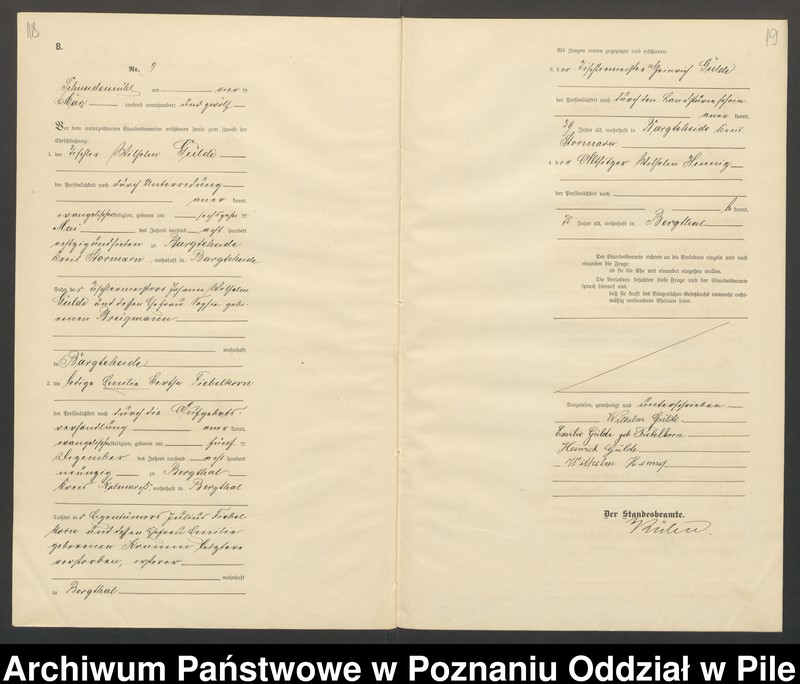 18
B.
Nr. 9
Schneidemühl am vier ten
März tausend neunhundert und zwölf
Vor dem unterzeichneten Standesbeamten erschienen heute zum Zwecke der
Eheschließung:
1. der Tischler Wilhelm Gülde
der Persönlichkeit nach durch Unterredung
aner kannt,
evangelischer Religion, geboren am sechzehn ten
Mai des Jahres tausend acht hundert
achtzigundsieben zu Bargteheide
Kreis Stormarn, wohnhaft in Bargteheide
Sohn des Tischlermeisters Johann Wilhelm
Gülde und dessen Ehefrau Sophie gebo-
renen
wohnhaft
in Bargteheide
2. die ledige Emilie Bertha Fiebelkorn
der Persönlichkeit nach durch die Aufgebots-
verhandlung aner kannt,
evangelischer Religion, geboren am fünf ten
Dezember des Jahres tausend acht hundert
neunzig zu Bergthal
Kreis Kolmar i/P, wohnhaft in Bergthal
Tochter des Eigentümers Julius Fiebel-
korn und dessen Ehefrau Emilie
geborenen Krumm letztere
verstorben, ersterer
wohnhaft
in Bergthal
19
Als Zeugen waren zugezogen und erschienen:
3. der Tischlermeister Heinrich Gülde
der Persönlichkeit nach durch den Landsturmschein
aner kannt,
39 Jahre alt, wohnhaft in Bargteheide Kreis
Stormarn
4. der Altsitzer Wilhelm Hennig
der Persönlichkeit nach
be kannt,
75 Jahre alt, wohnhaft in Bergthal
Der Standesbeamte richtete an die Verlobten einzeln und nach
einander die Frage:
ob sie die Ehe mit einander eingehen wollen.
Die Verlobten bejahten diese Frage und der Standesbeamte
sprach hierauf aus,
daß sie kraft des Bürgerlichen Gesetzbuchs nunmehr recht-
mäßig verbundene Eheleute seien.
Vorgelesen, genehmigt und unterschrieben
Wilhelm Gülde
Emilie Gülde geb Fiebelkorn
Heinrich Gülde
Wilhelm Hennig
Der Standesbeamte.
Archiwum Państwowe w Poznaniu Oddział w Pile